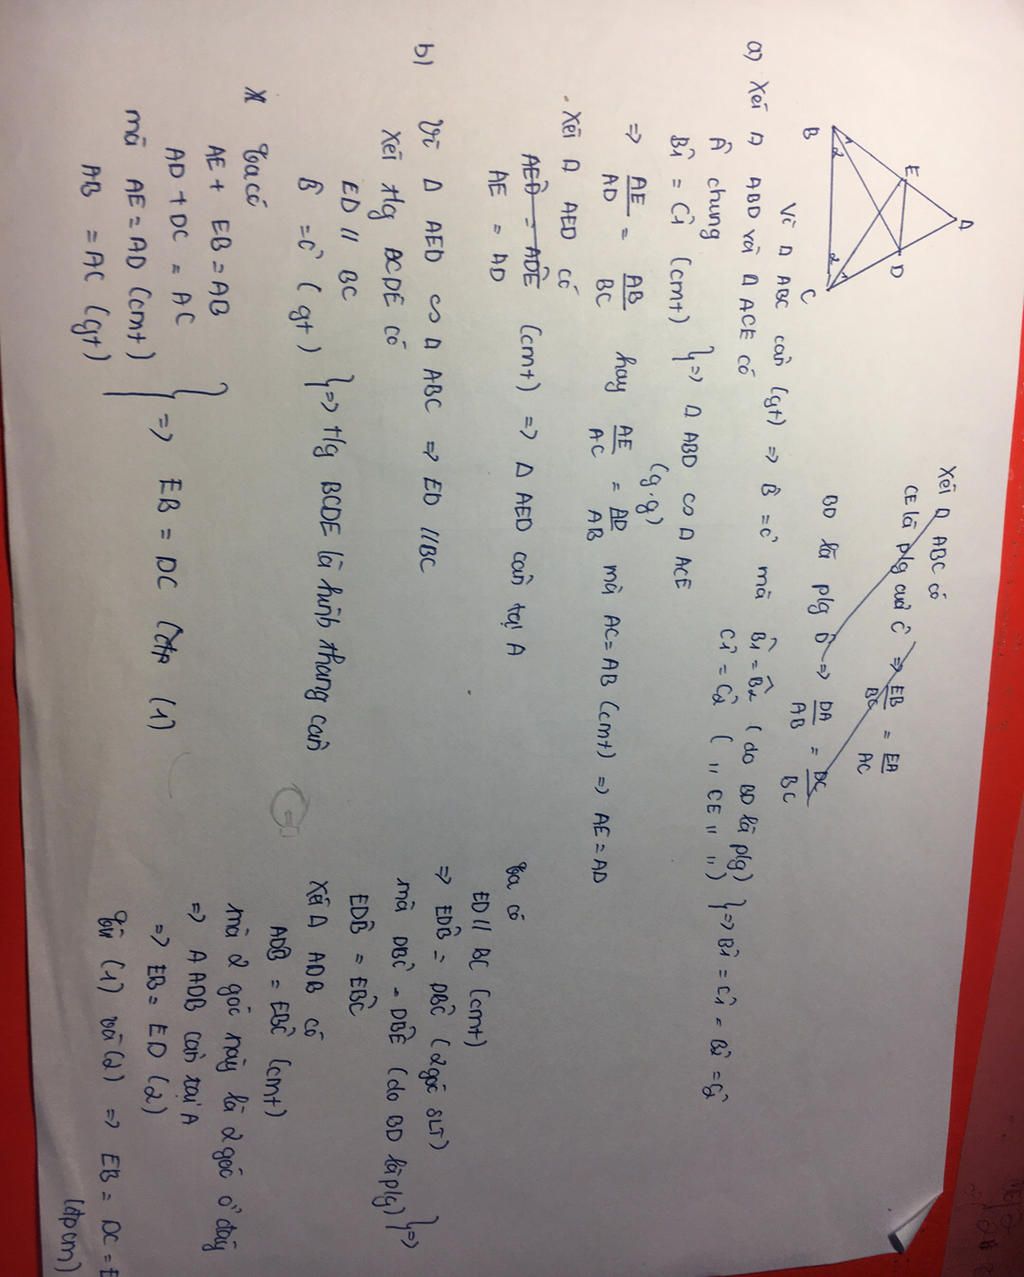 A
E
D
B
C
1
2
2
1
Xét Δ ABC có
CE là p/g của Ĉ => EB/BC = EA/AC
BD là p/g B̂ => DA/AB = DC/BC
Vì Δ ABC cân (gt) => B̂ = Ĉ mà B̂1 = B̂2 (do BD là p/g)
Ĉ1 = Ĉ2 ( " CE " " ) } => B̂1 = Ĉ1 = B̂2 = Ĉ2
a) Xét Δ ABD và Δ ACE có
Â chung
B̂1 = Ĉ1 (cmt) } => Δ ABD ∽ Δ ACE
(g.g)
=> AE/AD = AB/BC hay AE/AC = AD/AB mà AC = AB (cmt) => AE = AD
Xét Δ AED có
AED̂ = ADÊ
AE = AD (cmt) => Δ AED cân tại A
b) Vì Δ AED ∽ Δ ABC => ED // BC
Xét t/g BCDE có
ED // BC
B̂ = Ĉ (gt) } => t/g BCDE là hình thang cân
* Ta có
AE + EB = AB
AD + DC = AC
mà AE = AD (cmt)
AB = AC (gt) } => EB = DC (1)
Ta có
ED // BC (cmt)
=> EDB̂ = DBĈ (2 góc SLT)
mà DBĈ = DBÊ (do BD là p/g) } =>
EDB̂ = EBĈ
Xét Δ ADB có
ADB̂ = EBĈ (cmt)
mà 2 góc này là 2 góc ở đáy
=> Δ ADB cân tại A
=> EB = ED (2)
Từ (1) và (2) => EB = DC = E
(đpcm)